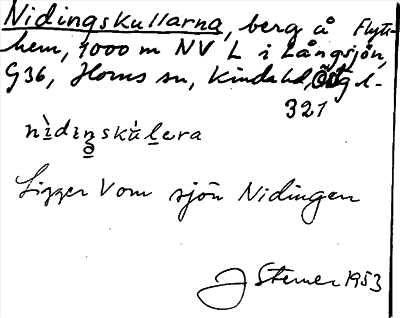 Nidingskullarna, berg å Flyt-
hem, 1000 m NV L i Långsjön,
G36, Horns sn, Kinda hd, Ög l.
321
nìdiŋskùlera
Ligger V om sjön Nidingen
J Sterner 1953